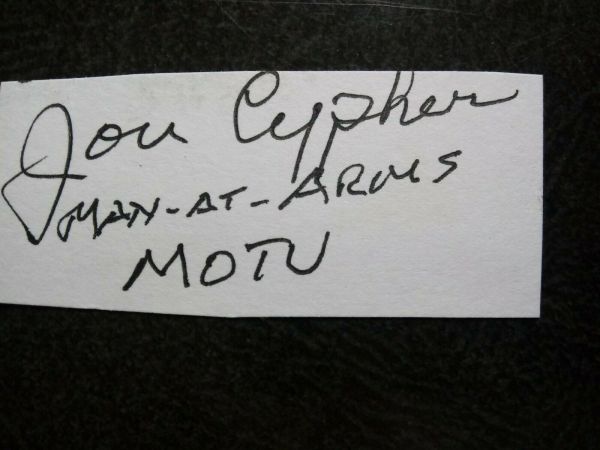 Jon Cypher
MAN-AT-ARMS
MOTU